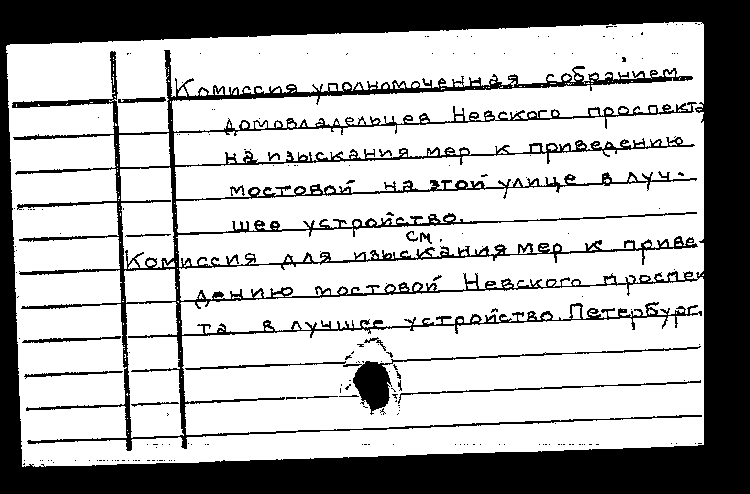 Комиссия уполномоченная собранием
домовладельцев Невского проспекта,
на изыскания мер к приведению
мостовой на этой улице в луч-
шее устройство.
см.
Комиссия для изыскания мер к приве-
дению мостовой Невского проспек
та в лучшее устройство. Петербург.